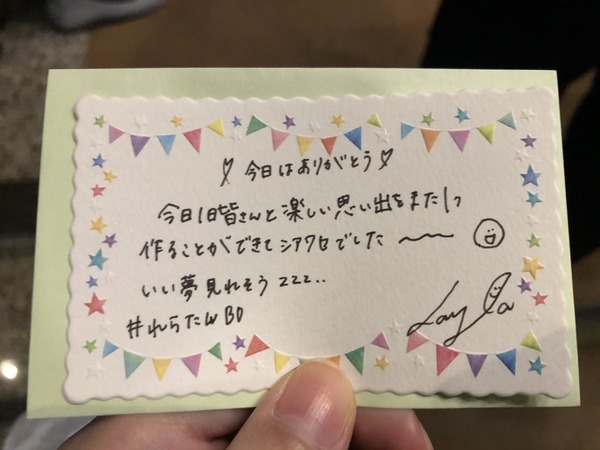 今日はありがとう
今日1日皆さんと楽しい思い出をまた1つ
作ることができてシアワセでした〜〜
いい夢見れそうzzz..
#れらたwBD